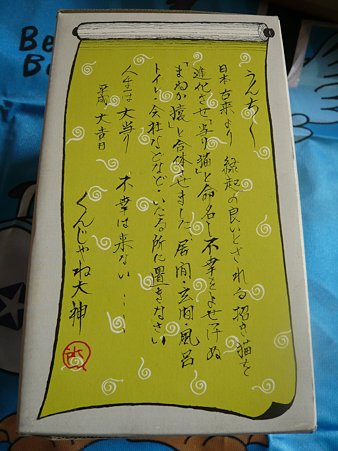 うんちく
日本古来より 縁起の良いとされる招き猫を
進化させ「当り猫」と命名し不幸をよせ付ぬ
「まぬか猿」と合体させました。居間・玄関・風呂
トイレ・会社などなど・いたる所に置きなさい
人生は大当り 不幸は来ない・・・
平成 大吉日
くんじゃね大神
Be
B